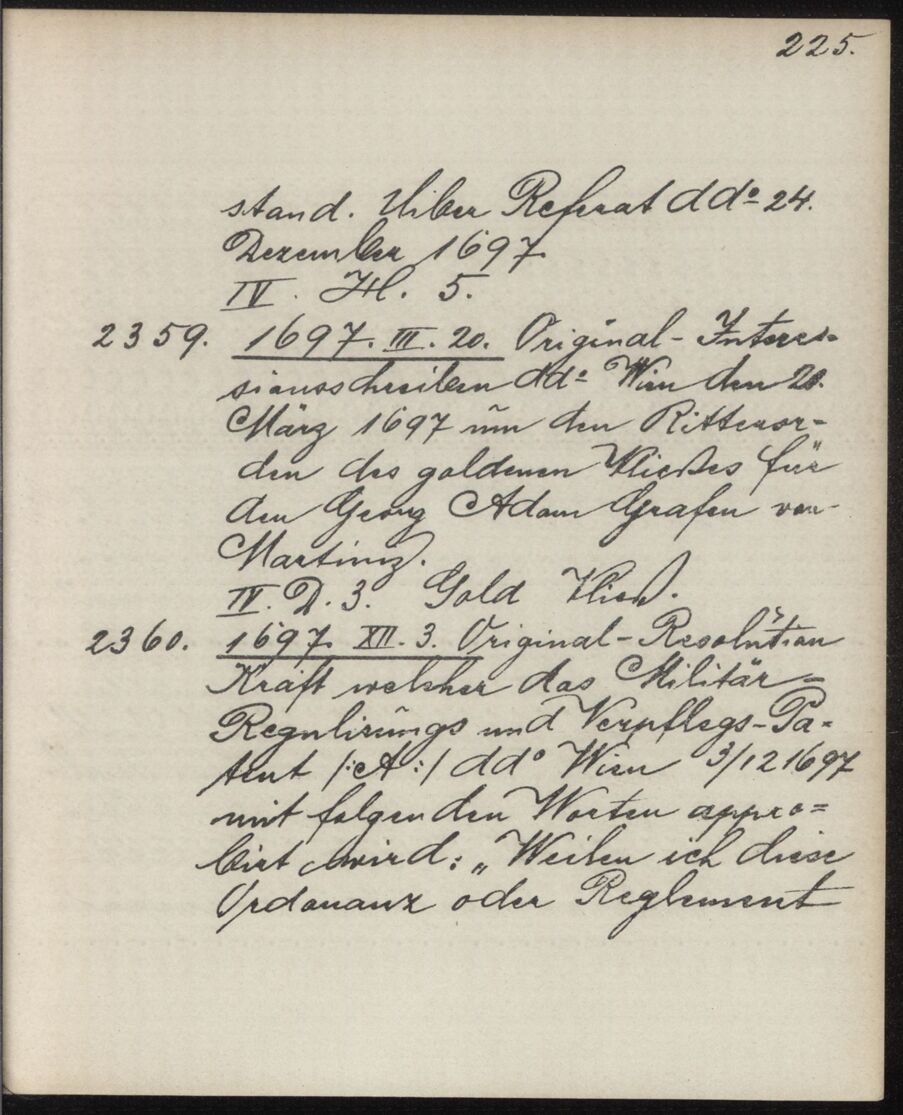 225.
stand. Uiber Referat ddo 24.
Dezember 1697
IV. H. 5.
2359. 1697. III. 20. Original-Interces-
sionsschreiben ddo Wien den 20.
März 1697 um den Ritteror-
den des goldenen Vließes für
den Georg Adam Grafen von
Martiniz.
IV. D. 3. Gold Vließ.
2360. 1697 XII. 3. Original-Resolution
Kraft welcher das Militär-
Regulirungs und Verpflegs-Pa-
tent /:A:/ ddo Wien 3/12 1697
mit folgenden Worten appro=
birt wird: „Weilen ich diese
Ordonanz oder Reglement